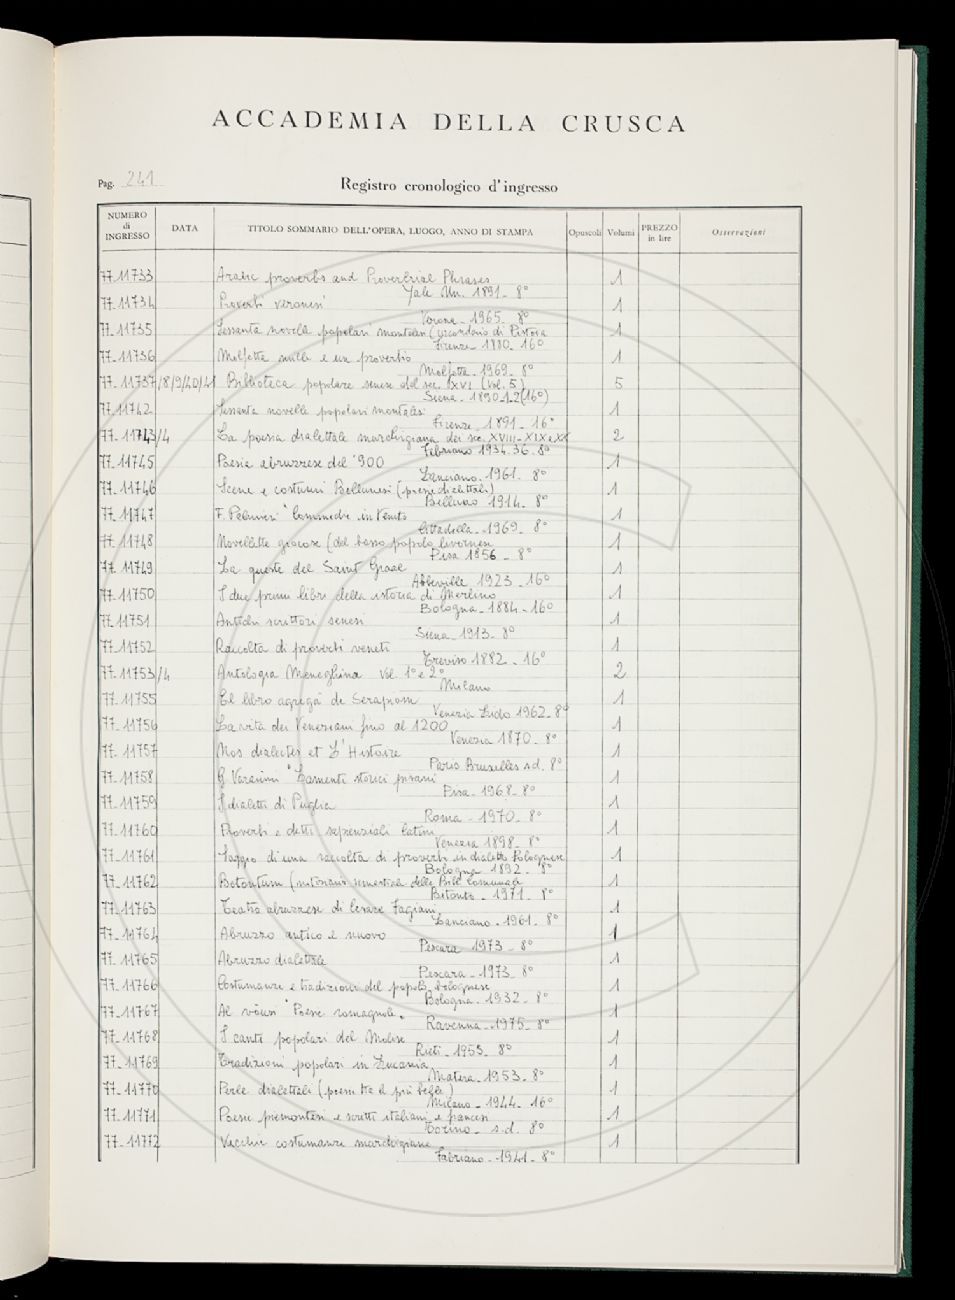 ACCADEMIA DELLA CRUSCA
Pag. 241
Registro cronologico d'ingresso
NUMERO di INGRESSO DATA TITOLO SOMMARIO DELL'OPERA, LUOGO, ANNO DI STAMPA Opuscoli Volumi PREZZO in lire Osservazioni
77-11733 Arabic proverbs and Proverbial Phrases 1
Yale Un. 1891 - 8°
77-11734 Proverbi veronesi 1
Verona - 1965 - 8°
77-11735 Sessanta novelle popolari montalesi (circondario di Pistoia 1
Firenze 1880 - 16°
77-11736 Molfetta mille e un proverbio 1
Molfetta - 1969 - 8°
77-11737/8/9/40/41 Biblioteca popolare senese del sec. XVI (Vol. 5) 5
Siena - 1890-1-2 (16°)
77-11742 Sessanta novelle popolari montalesi 1
Firenze - 1891 - 16°
77-11743/4 La poesia dialettale marchigiana dei sec. XVIII-XIX e XX 2
Fabriano 1934-36 - 8°
77-11745 Poesia abruzzese del '900 1
Lanciano - 1961 - 8°
77-11746 Scene e costumi Bellunesi (poesie dialettali) 1
Belluno 1914 - 8°
77-11747 F. Pelmieri "Commedie in Veneto 1
Cittadella - 1969 - 8°
77-11748 Novellette giocose (del basso popolo livornese 1
Pisa 1856 - 8°
77-11749 La queste del Saint Graal 1
Abbeville 1923 - 16°
77-11750 I due primi libri della istoria di Merlino 1
Bologna - 1884 - 16°
77-11751 Antichi scrittori senesi 1
Siena - 1913 - 8°
77-11752 Raccolta di proverbi veneti 1
Treviso 1882 - 16°
77-11753/4 Antologia Meneghina Vol. 1° e 2° 2
Milano
77-11755 El libro agregà de Serapiom 1
Venezia Lido 1962 - 8°
77-11756 La vita dei Veneziani fino al 1200 1
Venezia 1870 - 8°
77-11757 Nos dialectes et L'Histoire 1
Paris Bruxelles s.d. 8°
77-11758 G. Varanini "Lamenti storici pisani 1
Pisa - 1968 - 8°
77-11759 I dialetti di Puglia 1
Roma - 1970 - 8°
77-11760 Proverbi e detti sapienziali latini 1
Venezia 1898 - 8°
77-11761 Saggio di una raccolta di proverbi in dialetto Bolognese 1
Bologna - 1892 - 8°
77-11762 Botontum (notiziario semestrale della Bibl. Comunale 1
Bitonto - 1971 - 8°
77-11763 Teatro abruzzese di Cesare Fagiani 1
Lanciano - 1961 - 8°
77-11764 Abruzzo antico e nuovo 1
Pescara 1973 - 8°
77-11765 Abruzzo dialettale 1
Pescara - 1973 - 8°
77-11766 Costumanze e tradizioni del popolo bolognese 1
Bologna - 1932 - 8°
77-11767 Al "Poesie romagnole" 1
Ravenna - 1975 - 8°
77-11768 I canti popolari del Molise 1
Rieti - 1953 - 8°
77-11769 Tradizioni popolari in Lucania 1
Matera - 1953 - 8°
77-11770 Perle dialettali (poesie tra le più belle) 1
Milano - 1944 - 16°
77-11771 Poesie piemontesi e scritti italiani e francesi 1
Torino - s.d. 8°
77-11772 Vecchie costumanze marchigiane 1
Fabriano - 1941 - 8°